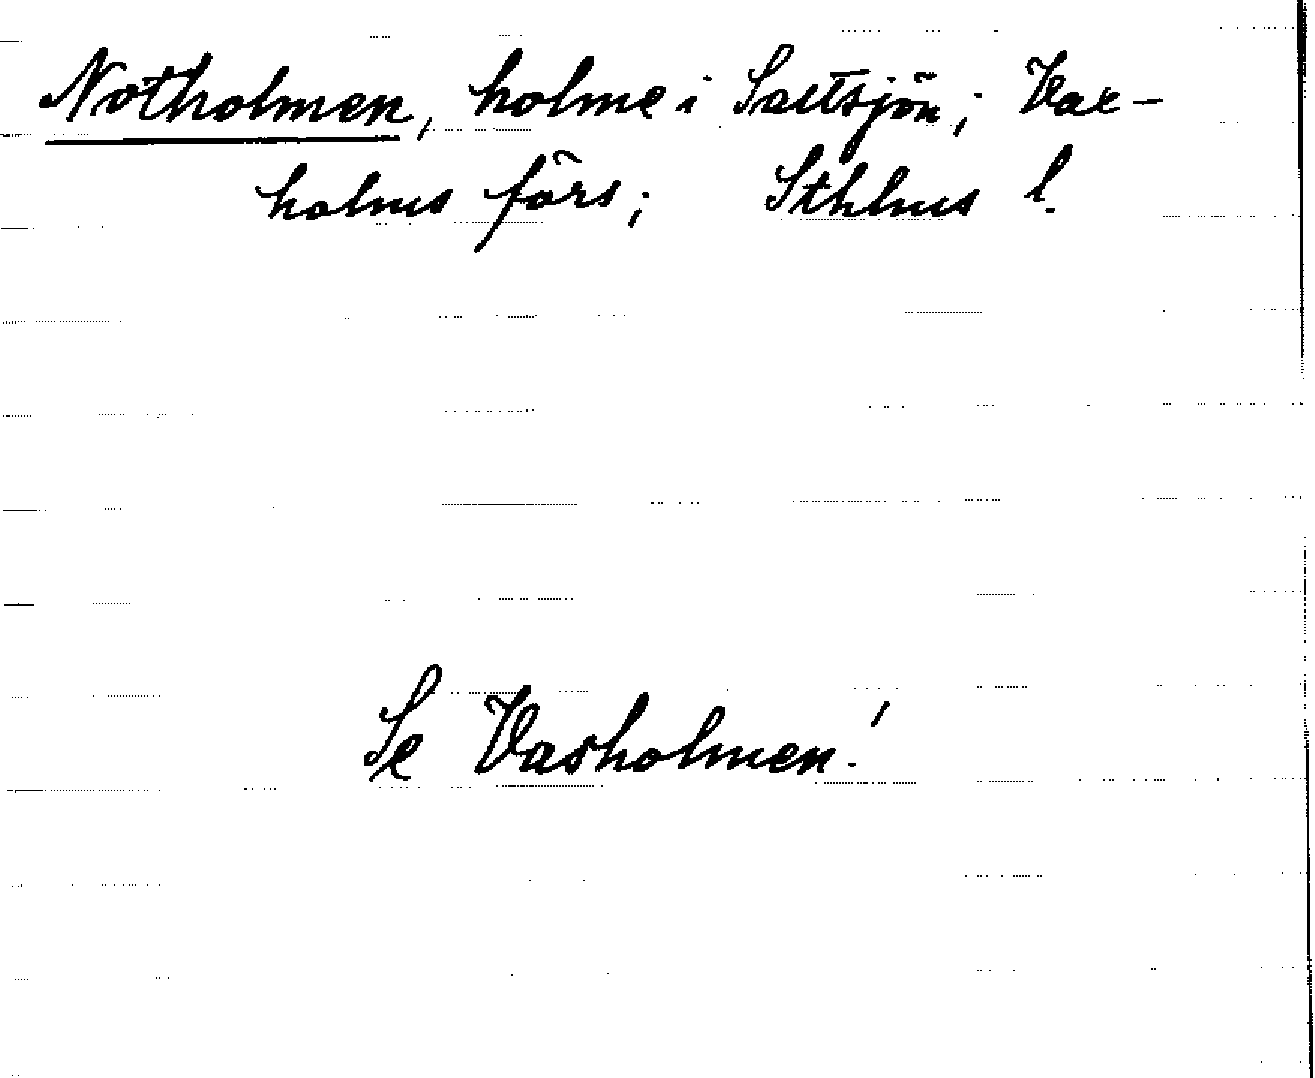 Notholmen, holme i Saltsjön; Vax-
holms förs; Sthlms l.
Se Vaxholmen!